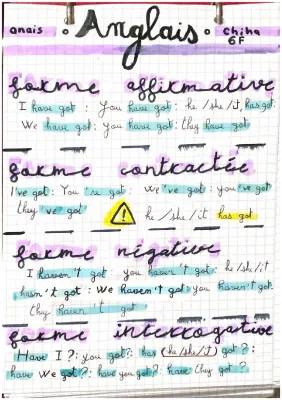 anaïs • Anglais • chiha
6F
forme affirmative
I have got : You have got : he/she/it, has got :
We have got : you have got : they have got
forme contractée
I've got : You 've got : We 've got : you've got
they 've got ! he/she/it has got
forme négative
I haven't got : you hasn't got : he/she/it
hasn't got : We haven't got : you haven't got :
they haven't got
forme interrogative
Have I ? : you got ? : has (he/she/it) got ? :
have We got ? : have you got ? : have they got ?